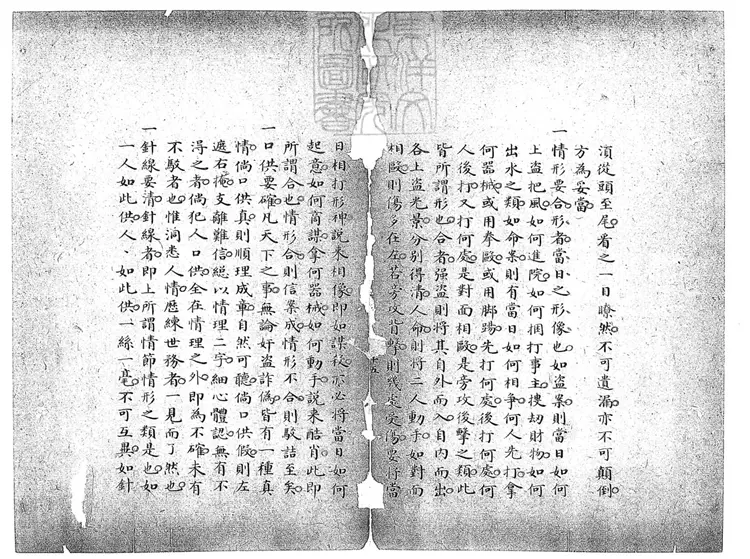 須從頭至尾看之一目瞭然不可遺漏亦不可顛倒
方為妥當
一情形要合形者當日之形像也如盜案則當日如何
上盜把風如何進院如何捆打事主搜劫財物如何
出水之類如命案則有當日如何相爭何人先打拿
何器械或用拳毆或用脚踢先打何處後打何處何
人後打又打何處是對面相毆是旁攻後擊之類此
皆所謂形也合者强盜則將其自外而入自內而出
各上盜光景分別得清人命則將二人動手如對面
相毆則傷多在左若旁攻背擊則
日相打形神說來相像即如謀殺亦必將當日如何
起意如何商謀拿何器械如何動手說來酷肖此即
所謂合也情形合則信案成情形不合則駁詰至矣
一口供要確凡天下之事無論奸盜詐偽皆有一種真
情倘口供真則順理成章自然可聽倘口供假則左
遮右掩支離難信總以情理二字細心體認無有不
得之者倘犯人口供全在情理之外即為不確未有
不駁者也惟洞悉人情歷練世務者一見而了然也
一針線要清針線者即上所謂情節情形之類是也如
一人如此供人人如此供一絲一毫不可互異如針